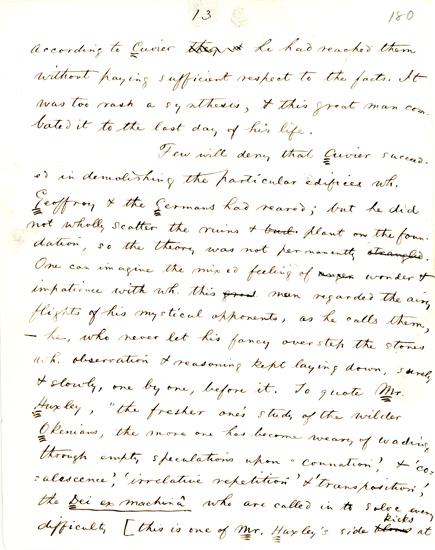 13
180
according to Cuvier they & he had reached them
without paying sufficient respect to the facts. It
was too rash a synthesis, & this great man com-
bated it to the last day of his life.
Few will deny that Cuvier succeed-
ed in demolishing the particular edifices wh.
Geoffroy & the Germans had reared; but he did
not wholly scatter the ruins & plant on the foun-
dation, so the theory was not permanently strangled.
One can imagine the mixed feeling of anger wonder &
impatience with wh. this great man regarded the airy
flights of his mystical opponents, as he calls them,
– he, who never let his fancy overstep the stones
wh. observation & reasoning kept laying down, surely
& slowly, one by one, before it. To quote Mr.
Huxley, "the fresher one's study of the wilder
Okenians, the more one has become weary of wading
through empty speculations upon "connation", & 'co-
=alescence', 'irrelative repetition' & 'transposition',
the Dei ex machinâ who are called in to solve every
kicks
difficulty [this is one of Mr. Huxley's side blows at